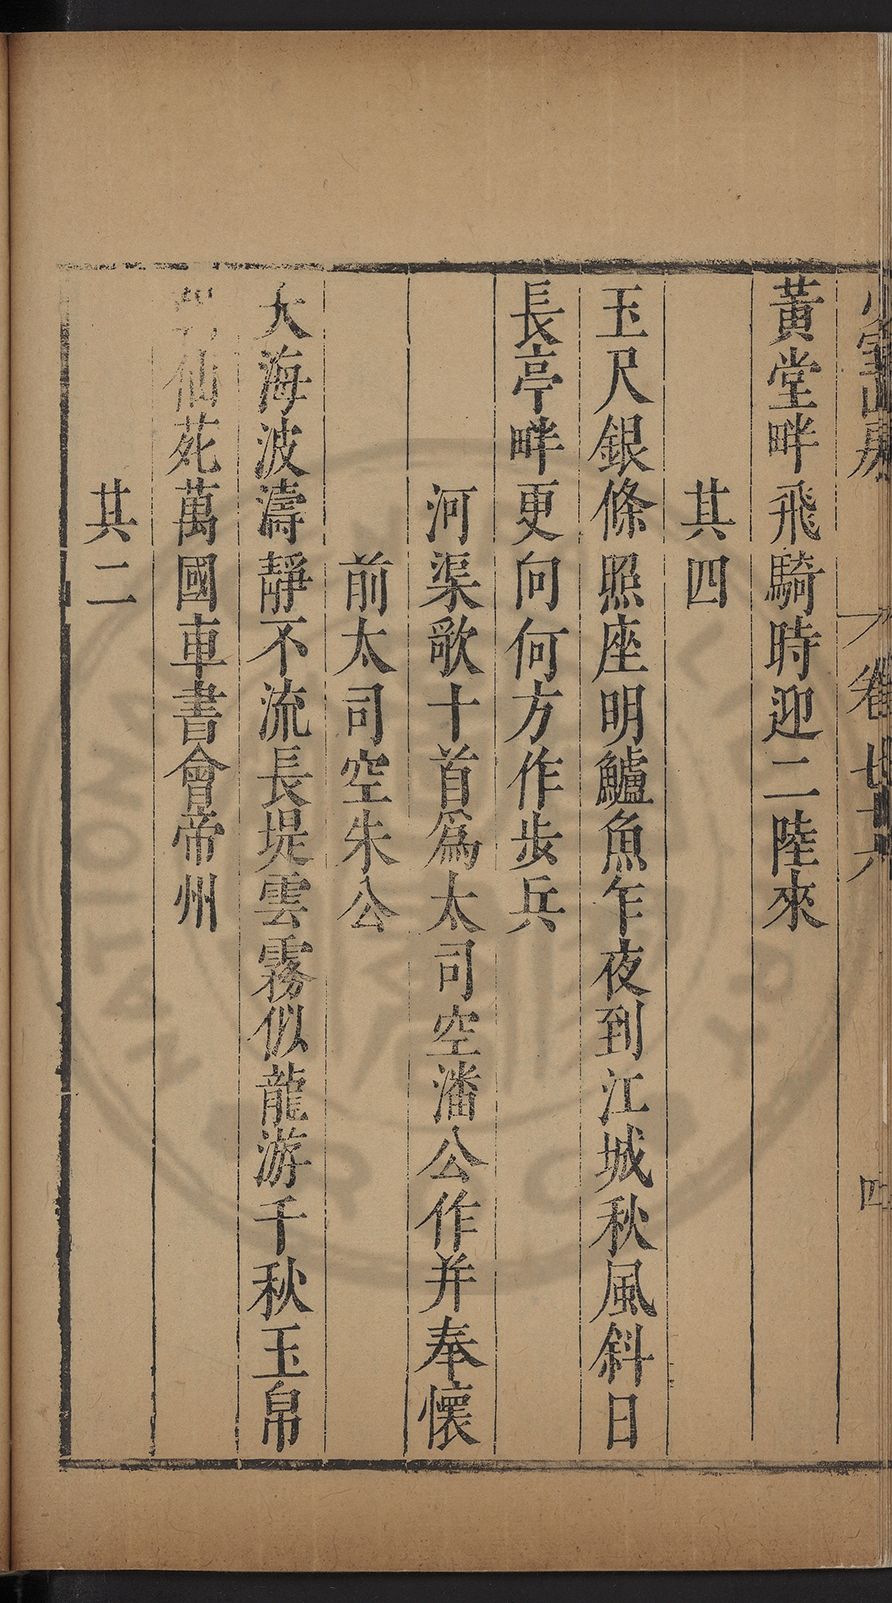 少室山房 卷七十六 四
黃堂畔飛騎時迎二陸來
其四
玉尺銀條照座明鱸魚乍夜到江城秋風斜日
長亭畔更向何方作步兵
河渠歌十首爲太司空潘公作并奉懷
前太司空朱公
大海波濤靜不流長堤雲霧似龍游千秋玉帛
仙苑萬國車書會帝州
其二